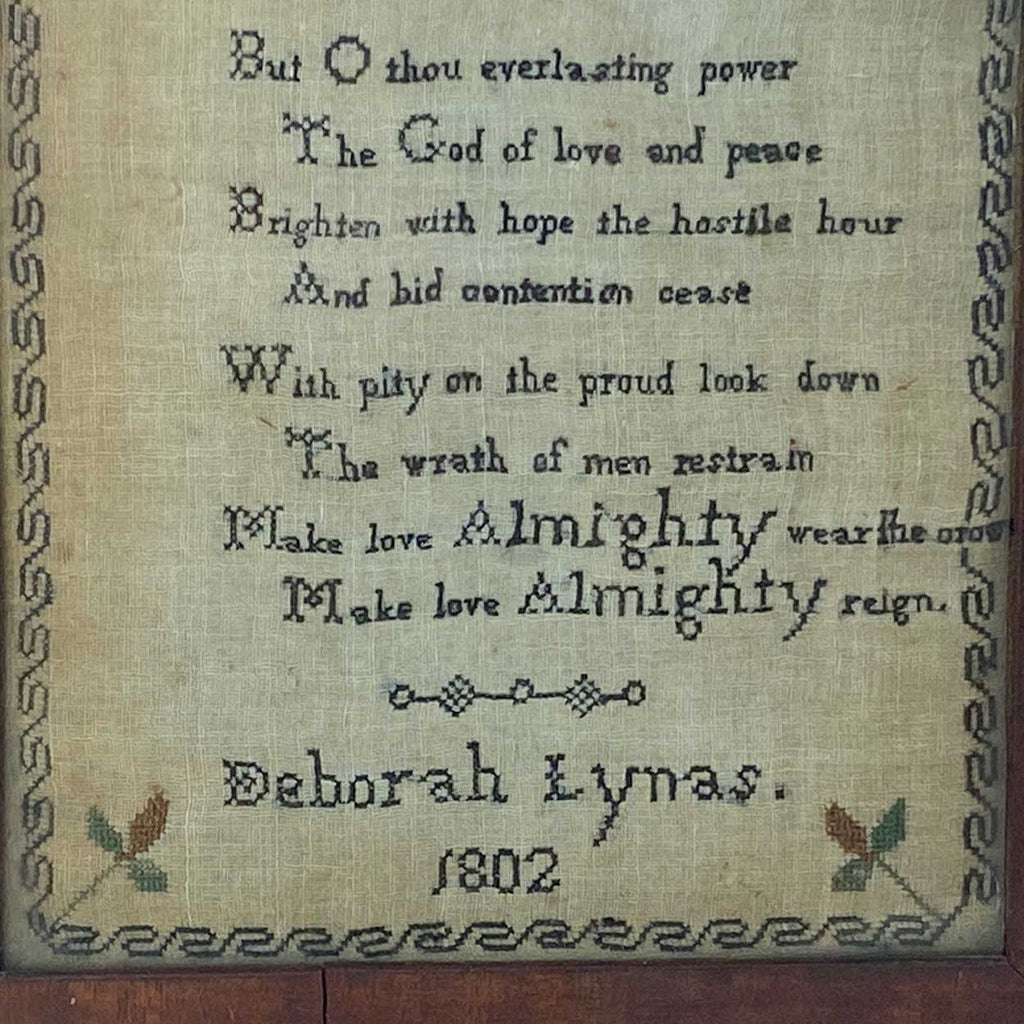 But O thou everlasting power
The God of love and peace
Brighten with hope the hostile hour
And bid contention cease
With pity on the proud look down
The wrath of men restrain
Make love Almighty wear the crow
Make love Almighty reign.
Deborah Lynas.
1802